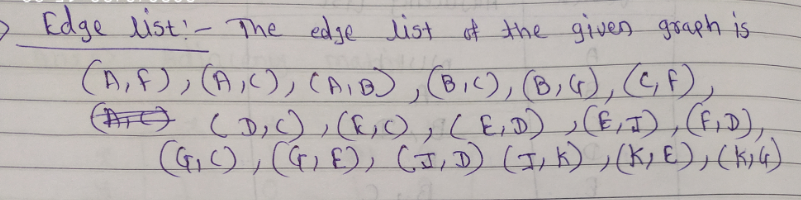 Edge list:- The edge list of the given graph is
(A,F), (A,C), (A,B), (B,C), (B,G), (C,F),
(A,C) (D,C), (E,C), (E,D), (E,J), (F,D),
(G,C), (G,E), (J,D) (J,K), (K,E), (K,G)